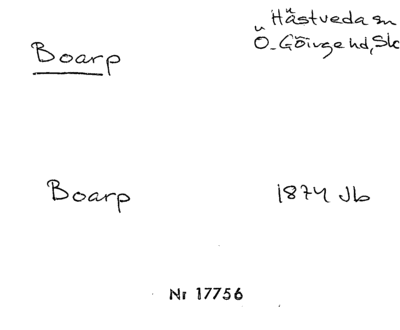 Hästveda sn
Ö. Göinge hd, Sk
Boarp
Boarp 1874 Jb
Nr 17756